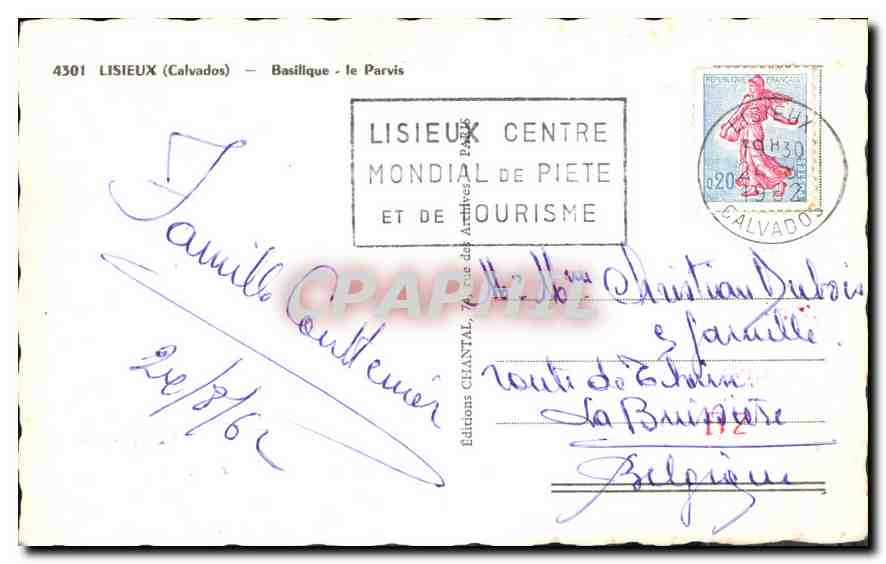 4301 LISIEUX (Calvados) — Basilique - le Parvis
REPUBLIQUE FRANÇAISE
0,20
LISIEUX
19H30
CALVADOS
LISIEUX CENTRE
MONDIAL DE PIETE
ET DE TOURISME
Famille
24/8/62
Editions CHANTAL, 74, rue des Archives - PARIS
CPAPHIL
Mr Mme Christian Dubois
& famille.
route de
La Buissière
Belgique